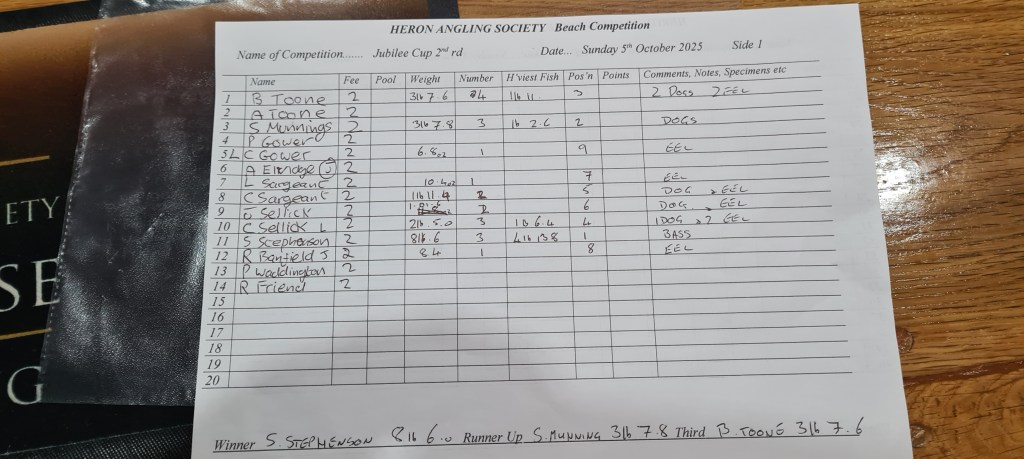 HERON ANGLING SOCIETY Beach Competition
Name of Competition....... Jubilee Cup 2nd rd Date... Sunday 5th October 2025 Side 1
Name Fee Pool Weight Number H'viest Fish Pos'n Points Comments, Notes, Specimens etc
1 B Toone 2 3lb 7.6 4 1lb 11 3 2 Dogs 2 EEL
2 A Toone 2
3 S Munnings 2 3lb 7.8 3 1b 2.6 2 DOGS
4 P Gower 2
5 L C Gower 2 6.8oz 1 9 EEL
6 A Elridge J 2
7 L Sargeant 2 10.4oz 1 7 EEL
8 C Sargeant 2 1lb 11.4 2 5 DOG, EEL
9 G Sellick 2 2 6 DOG, EEL
10 C Sellick L 2 2lb 5.0 3 1b 6.4 4 1DOG, 2 EEL
11 S Stephenson 2 8lb.6 3 4lb 13.8 1 BASS
12 R Banfield J 2 8.4 1 8 EEL
13 P Waddington 2
14 R Friend 2
15
16
17
18
19
20
Winner S. STEPHENSON 8lb 6.0 Runner Up S. MUNNING 3lb 7.8 Third B. TOONE 3lb 7.6
ETY
SE
G